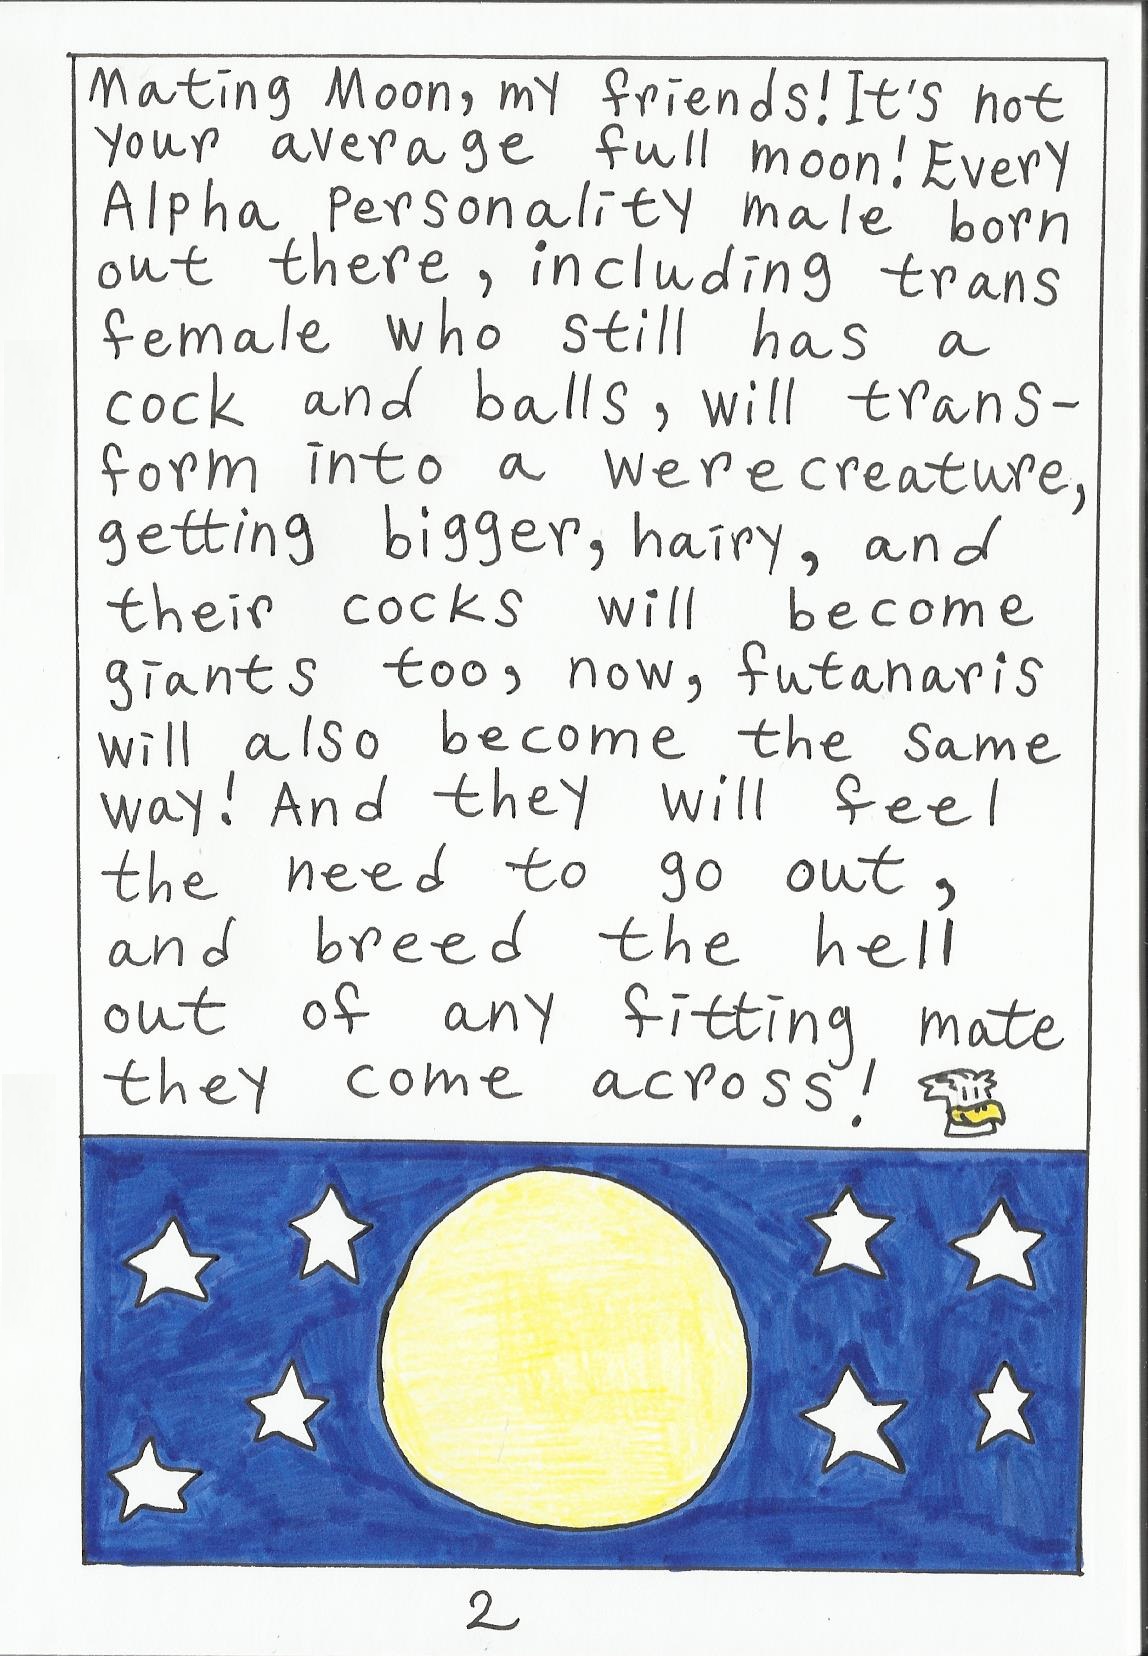 Mating Moon, my friends! It's not
your average full moon! Every
Alpha Personality male born
out there, including trans
female who still has a
cock and balls, will trans-
form into a werecreature,
getting bigger, hairy, and
their cocks will become
giants too, now, futanaris
will also become the same
way! And they will feel
the need to go out,
and breed the hell
out of any fitting mate
they come across!
2